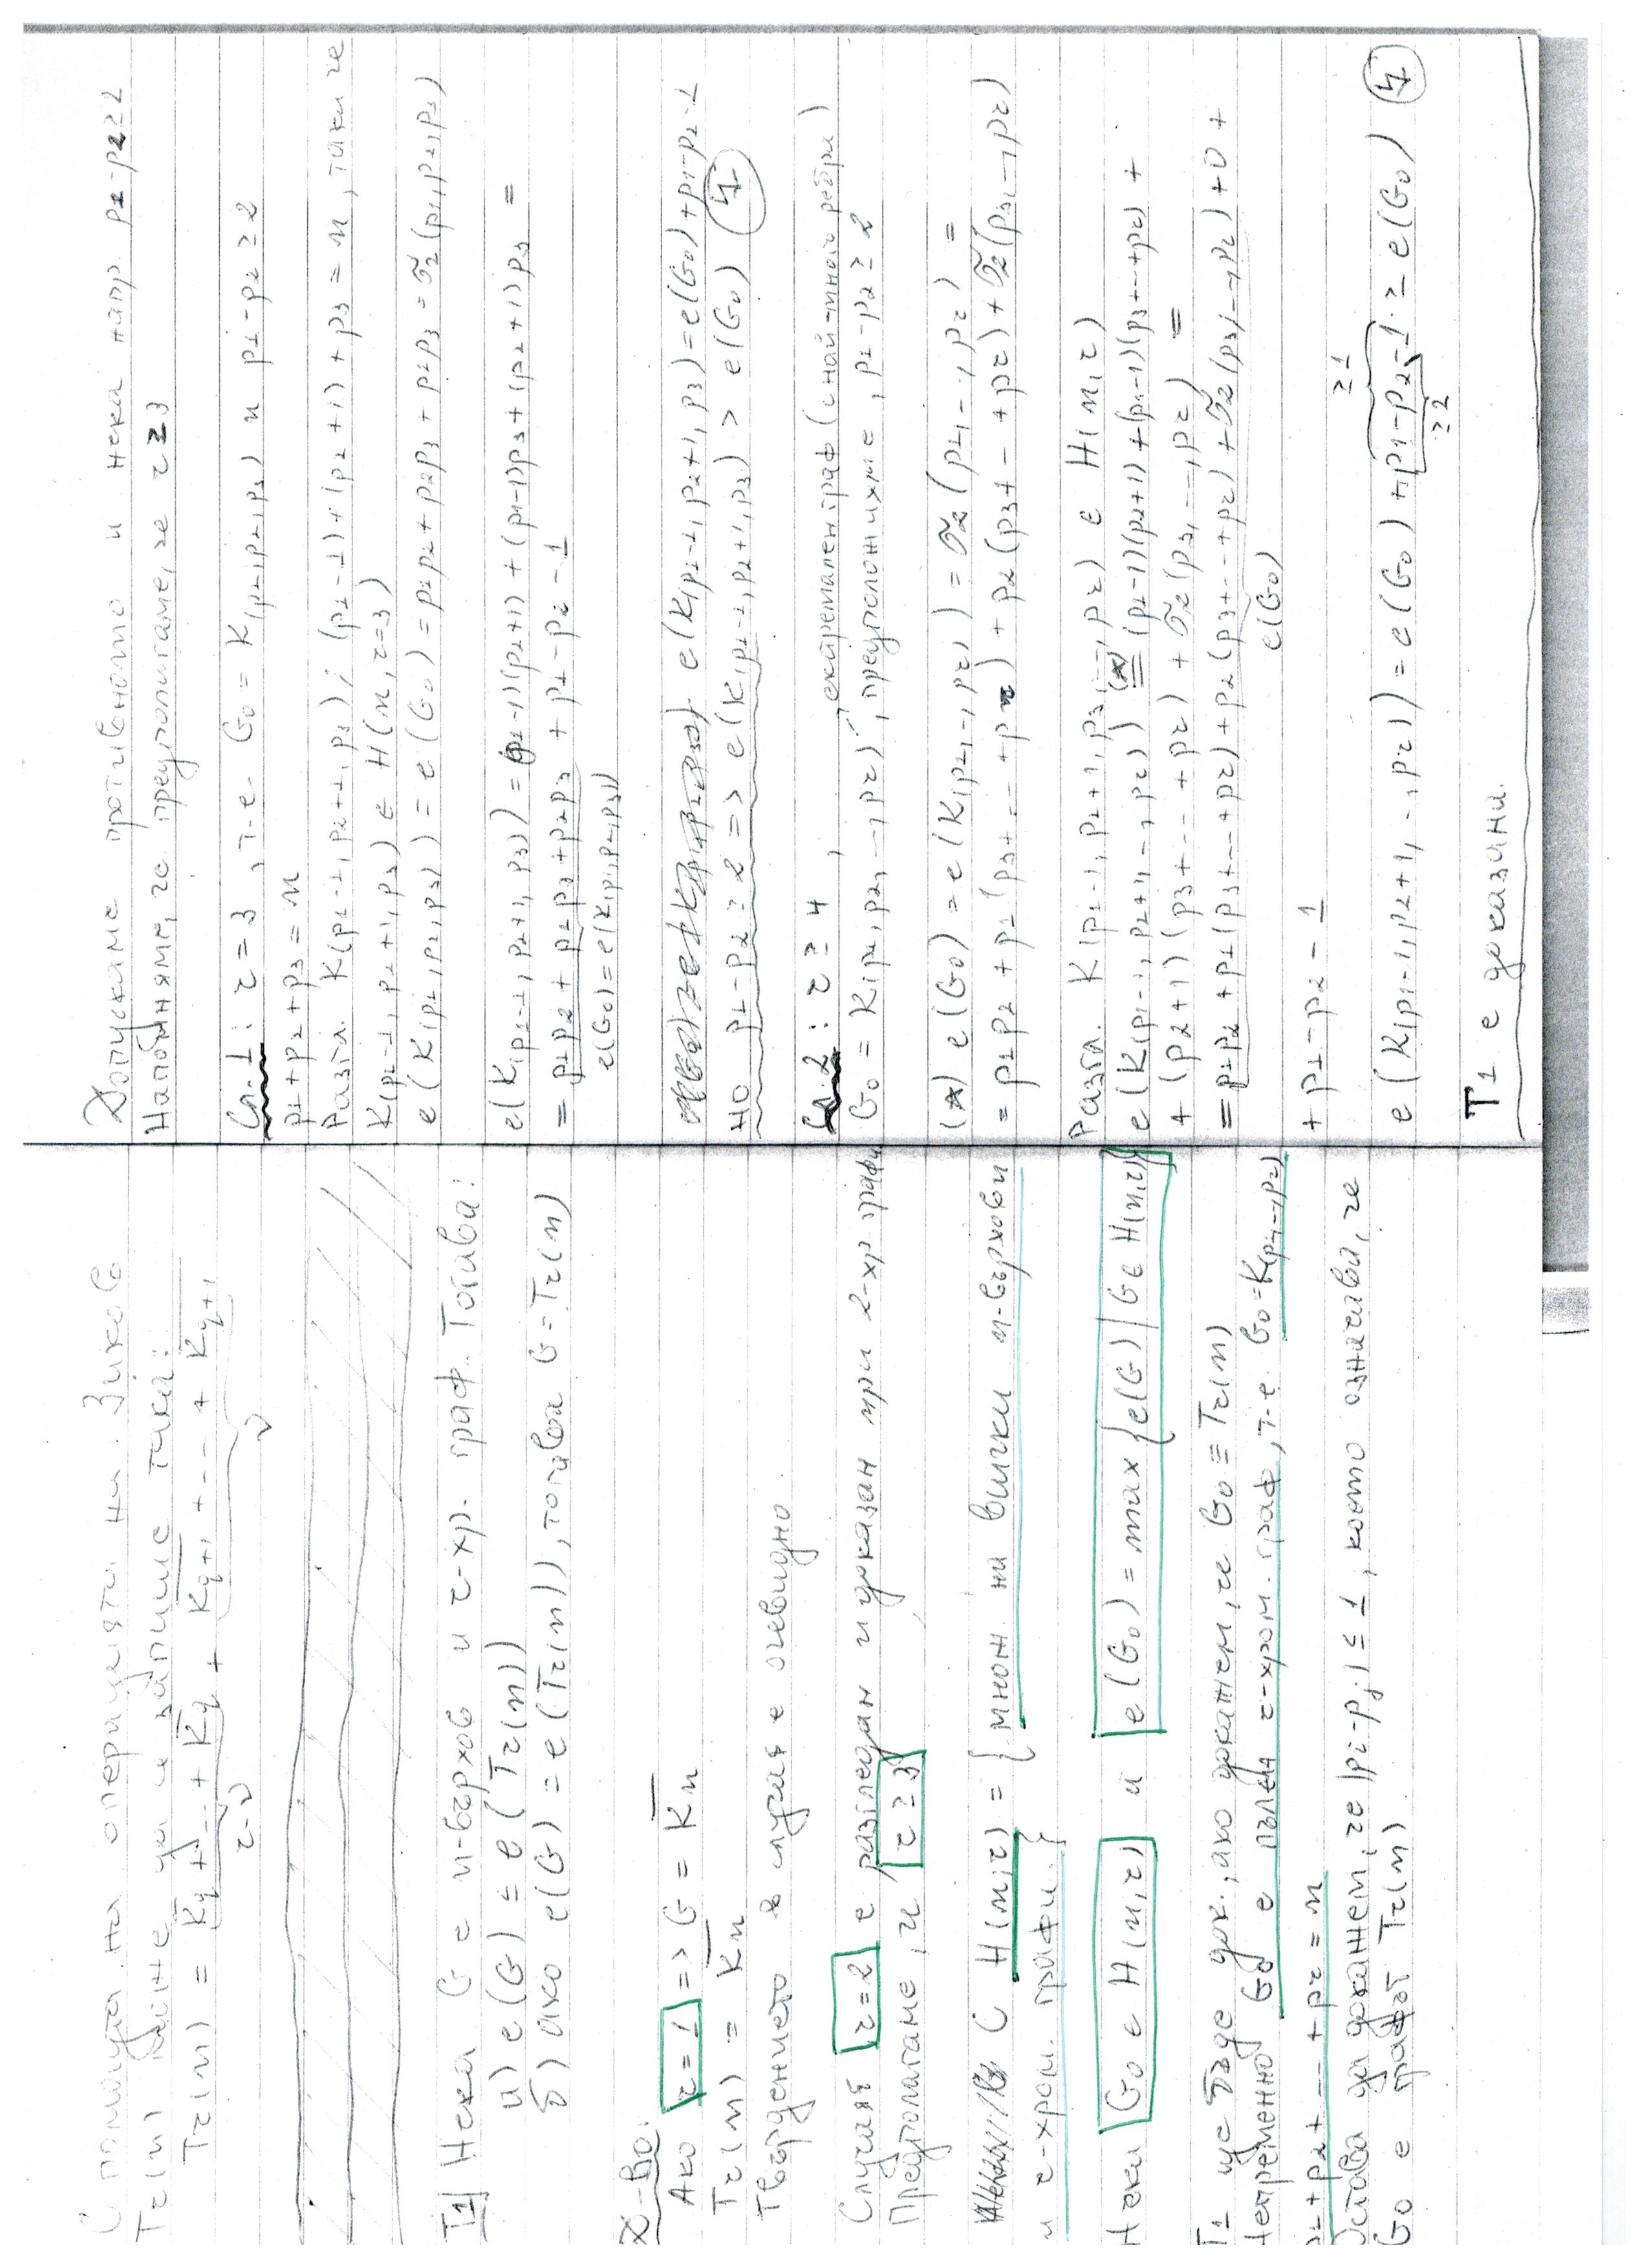 С помощта на операцията на Зиков
Tr(n) може да се запише така:
Tr(n) = K̅q + ... + K̅q + K̅q+1 + ... + K̅q+1
r-ν ν
T1 Нека G е n-върхов и r-хр. граф. Тогава:
а) e(G) ≤ e(Tr(n))
б) ако e(G) = e(Tr(n)), тогава G = Tr(n)
Д-во:
Ако r=1 => G = K̅n
Tr(n) = K̅n
Твърдението в случая е очевидно
Случая r=2 е разгледан и доказан при 2-хр графи
Предполагаме, и r≥3
С H(n,r) = {множ на всички n-върхови
и r-хром. графи.}
Нека G0 ∈ H(n,r) и e(G0) = max{e(G) | G ∈ H(n,r)}
T1 ще бъде док., ако докажем, че G0 ≡ Tr(n)
Непременно G0 е пълен r-хром. граф, т.е. G0=K(p1,...,pr)
p1+p2+...+pr = n
Остава да докажем, че |pi-pj| ≤ 1, което означава, че
G0 е графът Tr(n)
Допускаме противното и нека напр. p1-p2≥2
Напомняме, че предполагаме, че r≥3
Сл. 1: r=3, т.е. G0 = K(p1,p2,p3) и p1-p2≥2
p1+p2+p3 = n
Разгл. K(p1-1,p2+1,p3); (p1-1)+(p2+1)+p3 = n, така че
K(p1-1,p2+1,p3) ∈ H(n,r=3)
e(K(p1,p2,p3)) = e(G0) = p1p2+p1p3+p2p3 = σ2(p1,p2,p3)
e(K(p1-1,p2+1,p3)) = (p1-1)(p2+1)+(p1-1)p3+(p2+1)p3 =
= p1p2+p1p3+p2p3 + p1-p2-1
e(G0)=e(K(p1,p2,p3))
e(K(p1-1,p2+1,p3)=e(G0)+p1-p2-1
но p1-p2≥2 => e(K(p1-1,p2+1,p3) > e(G0) ↯
Сл. 2: r≥4, екстремален граф (с най-много ребра)
G0 = K(p1,p2,...,pr), предположихме, p1-p2≥2
(*) e(G0) = e(K(p1,...,pr)) = σ2(p1,...,pr) =
= p1p2+p1(p3+...+pr)+p2(p3+...+pr)+σ2(p3,...,pr)
Разгл. K(p1-1,p2+1,p3,...,pr) ∈ H(n,r)
e(K(p1-1,p2+1,...,pr)) (*)= (p1-1)(p2+1)+(p1-1)(p3+...+pr)+
+(p2+1)(p3+...+pr)+σ2(p3,...,pr) =
= p1p2+p1(p3+...+pr)+p2(p3+...+pr)+σ2(p3,...,pr)+0+
e(G0)
+p1-p2-1
≥1
e(K(p1-1,p2+1,...,pr)) = e(G0)+p1-p2-1 ≥ e(G0) ↯
≥2
T1 е доказани.